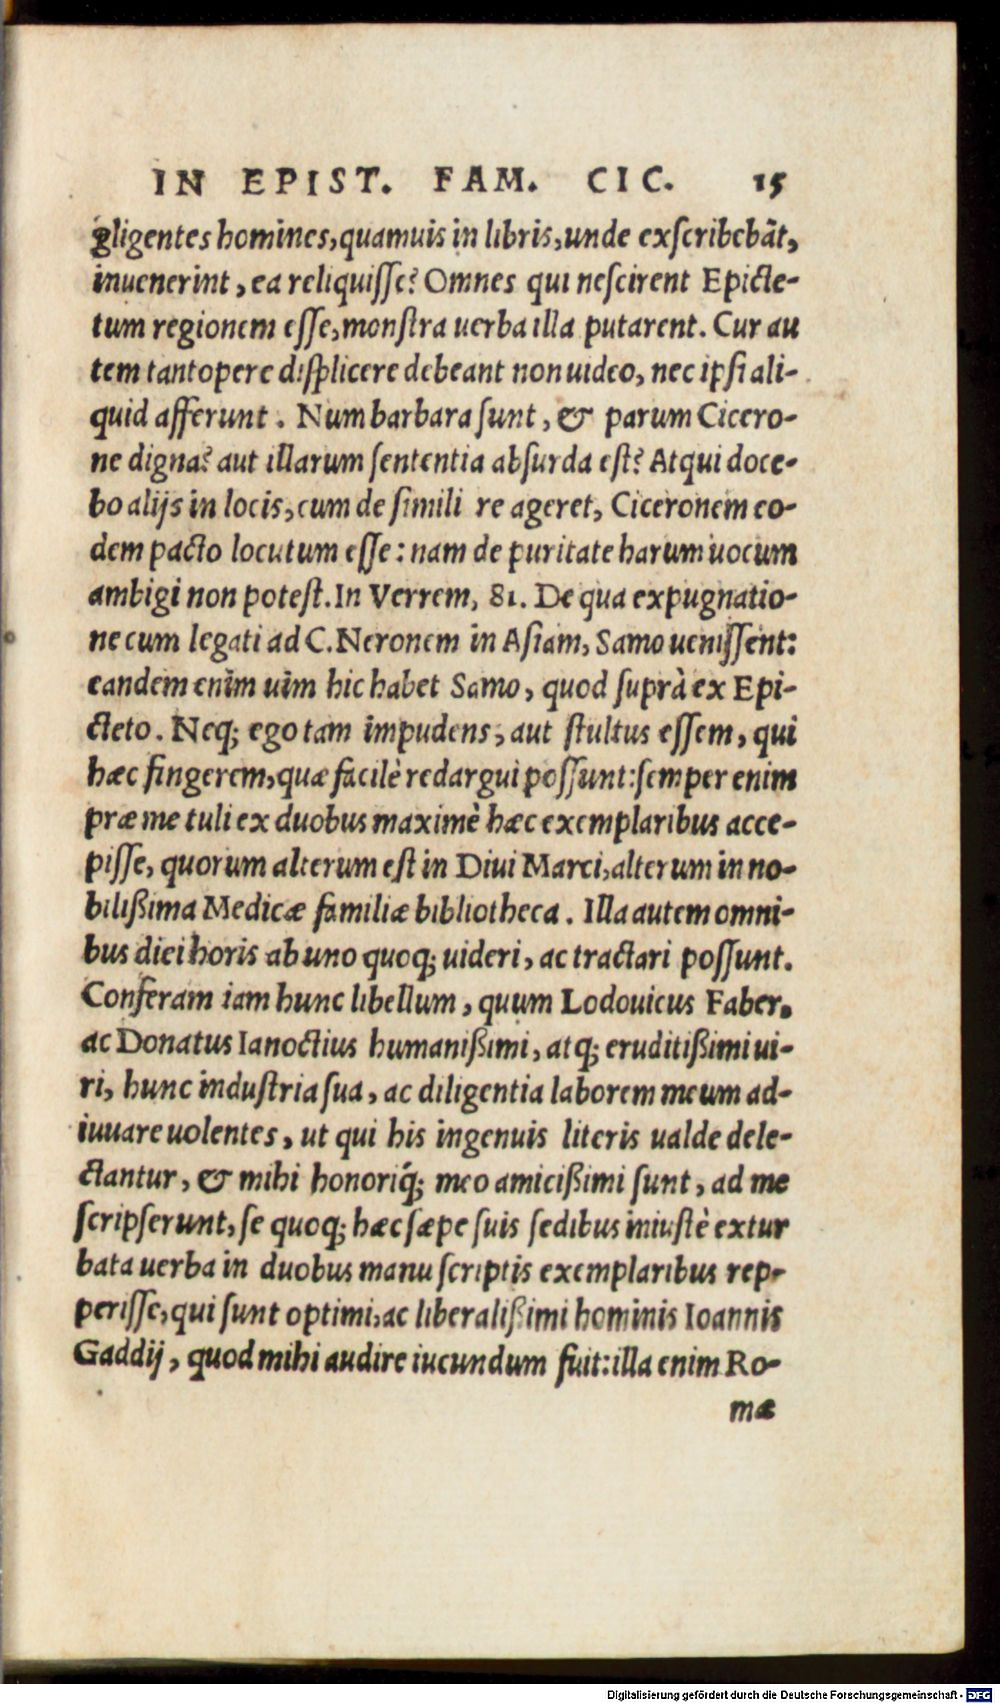 IN EPIST. FAM. CIC. 15
gligentes homines, quamuis in libris, unde exscribebãt,
inuenerint, ea reliquisse? Omnes qui nescirent Epicte-
tum regionem esse, monstra uerba illa putarent. Cur au
tem tantopere displicere debeant non uideo, nec ipsi ali-
quid afferunt. Num barbara sunt, & parum Cicero-
ne digna? aut illarum sententia absurda est? Atqui doce-
bo alijs in locis, cum de simili re ageret, Ciceronem eo-
dem pacto locutum esse: nam de puritate harum uocum
ambigi non potest. In Verrem, 81. De qua expugnatio-
ne cum legati ad C. Neronem in Asiam, Samo uenissent:
eandem enim uim hic habet Samo, quod suprà ex Epi-
cteto. Neq; ego tam impudens, aut stultus essem, qui
hæc fingerem, quæ facilè redargui possunt: semper enim
præ me tuli ex duobus maximè hæc exemplaribus acce-
pisse, quorum alterum est in Diui Marci, alterum in no-
bilißima Medicæ familiæ bibliotheca. Illa autem omni-
bus diei horis ab uno quoq; uideri, ac tractari possunt.
Conferam iam hunc libellum, quum Lodouicus Faber.
ac Donatus Ianoctius humanißimi, atq; eruditißimi ui-
ri, hunc industria sua, ac diligentia laborem meum ad-
iuuare uolentes, ut qui his ingenuis literis ualde dele-
ctantur, & mihi honoriq́; meo amicißimi sunt, ad me
scripserunt, se quoq; hæc sæpe suis sedibus iniustè extur
bata uerba in duobus manu scriptis exemplaribus rep-
perisse, qui sunt optimi, ac liberalißimi hominis Ioannis
Gaddij, quod mihi audire iucundum fuit: illa enim Ro-
mæ
Digitalisierung gefördert durch die Deutsche Forschungsgemeinschaft - DFG